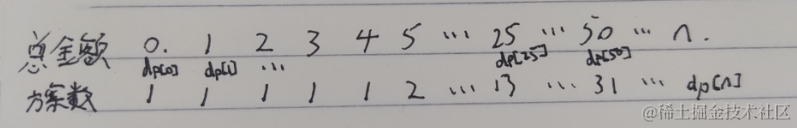 总金额 0. 1 2 3 4 5 ... 25 ... 50 ... n.
dp[0] dp[1] ... dp[25] dp[50]
方案数 1 1 1 1 1 2 ... 13 ... 31 ... dp[n]
@稀土掘金技术社区